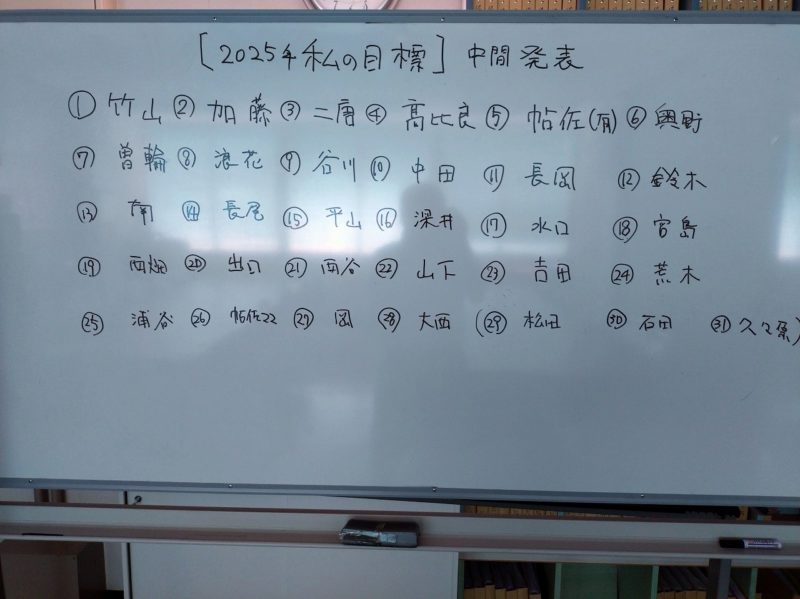 [2025年私の目標] 中間発表
① 竹山 ② 加藤 ③ 二唐 ④ 高比良 ⑤ 帖佐(有) ⑥ 興野
⑦ 曽輪 ⑧ 浪花 ⑨ 谷川 ⑩ 中田 ⑪ 長岡 ⑫ 鈴木
⑬ 南 ⑭ 長尾 ⑮ 平山 ⑯ 深井 ⑰ 水口 ⑱ 宮島
⑲ 西畑 ⑳ 出口 ㉑ 西谷 ㉒ 山下 ㉓ 吉田 ㉔ 荒木
㉕ 浦谷 ㉖ 帖佐22 ㉗ 岡 ㉘ 大西 (㉙ 松田 ㉚ 石田 ㉛ 久々原)